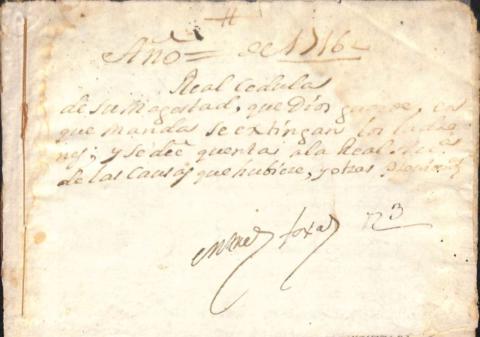 Año de 1716
Real Cedula
de su Magestad, que Dios guarde, en
que manda se extingan los ladro
nes; y se dee quenta a la Real
de las Causas que hubiere, y otras
en tres foxas n 3